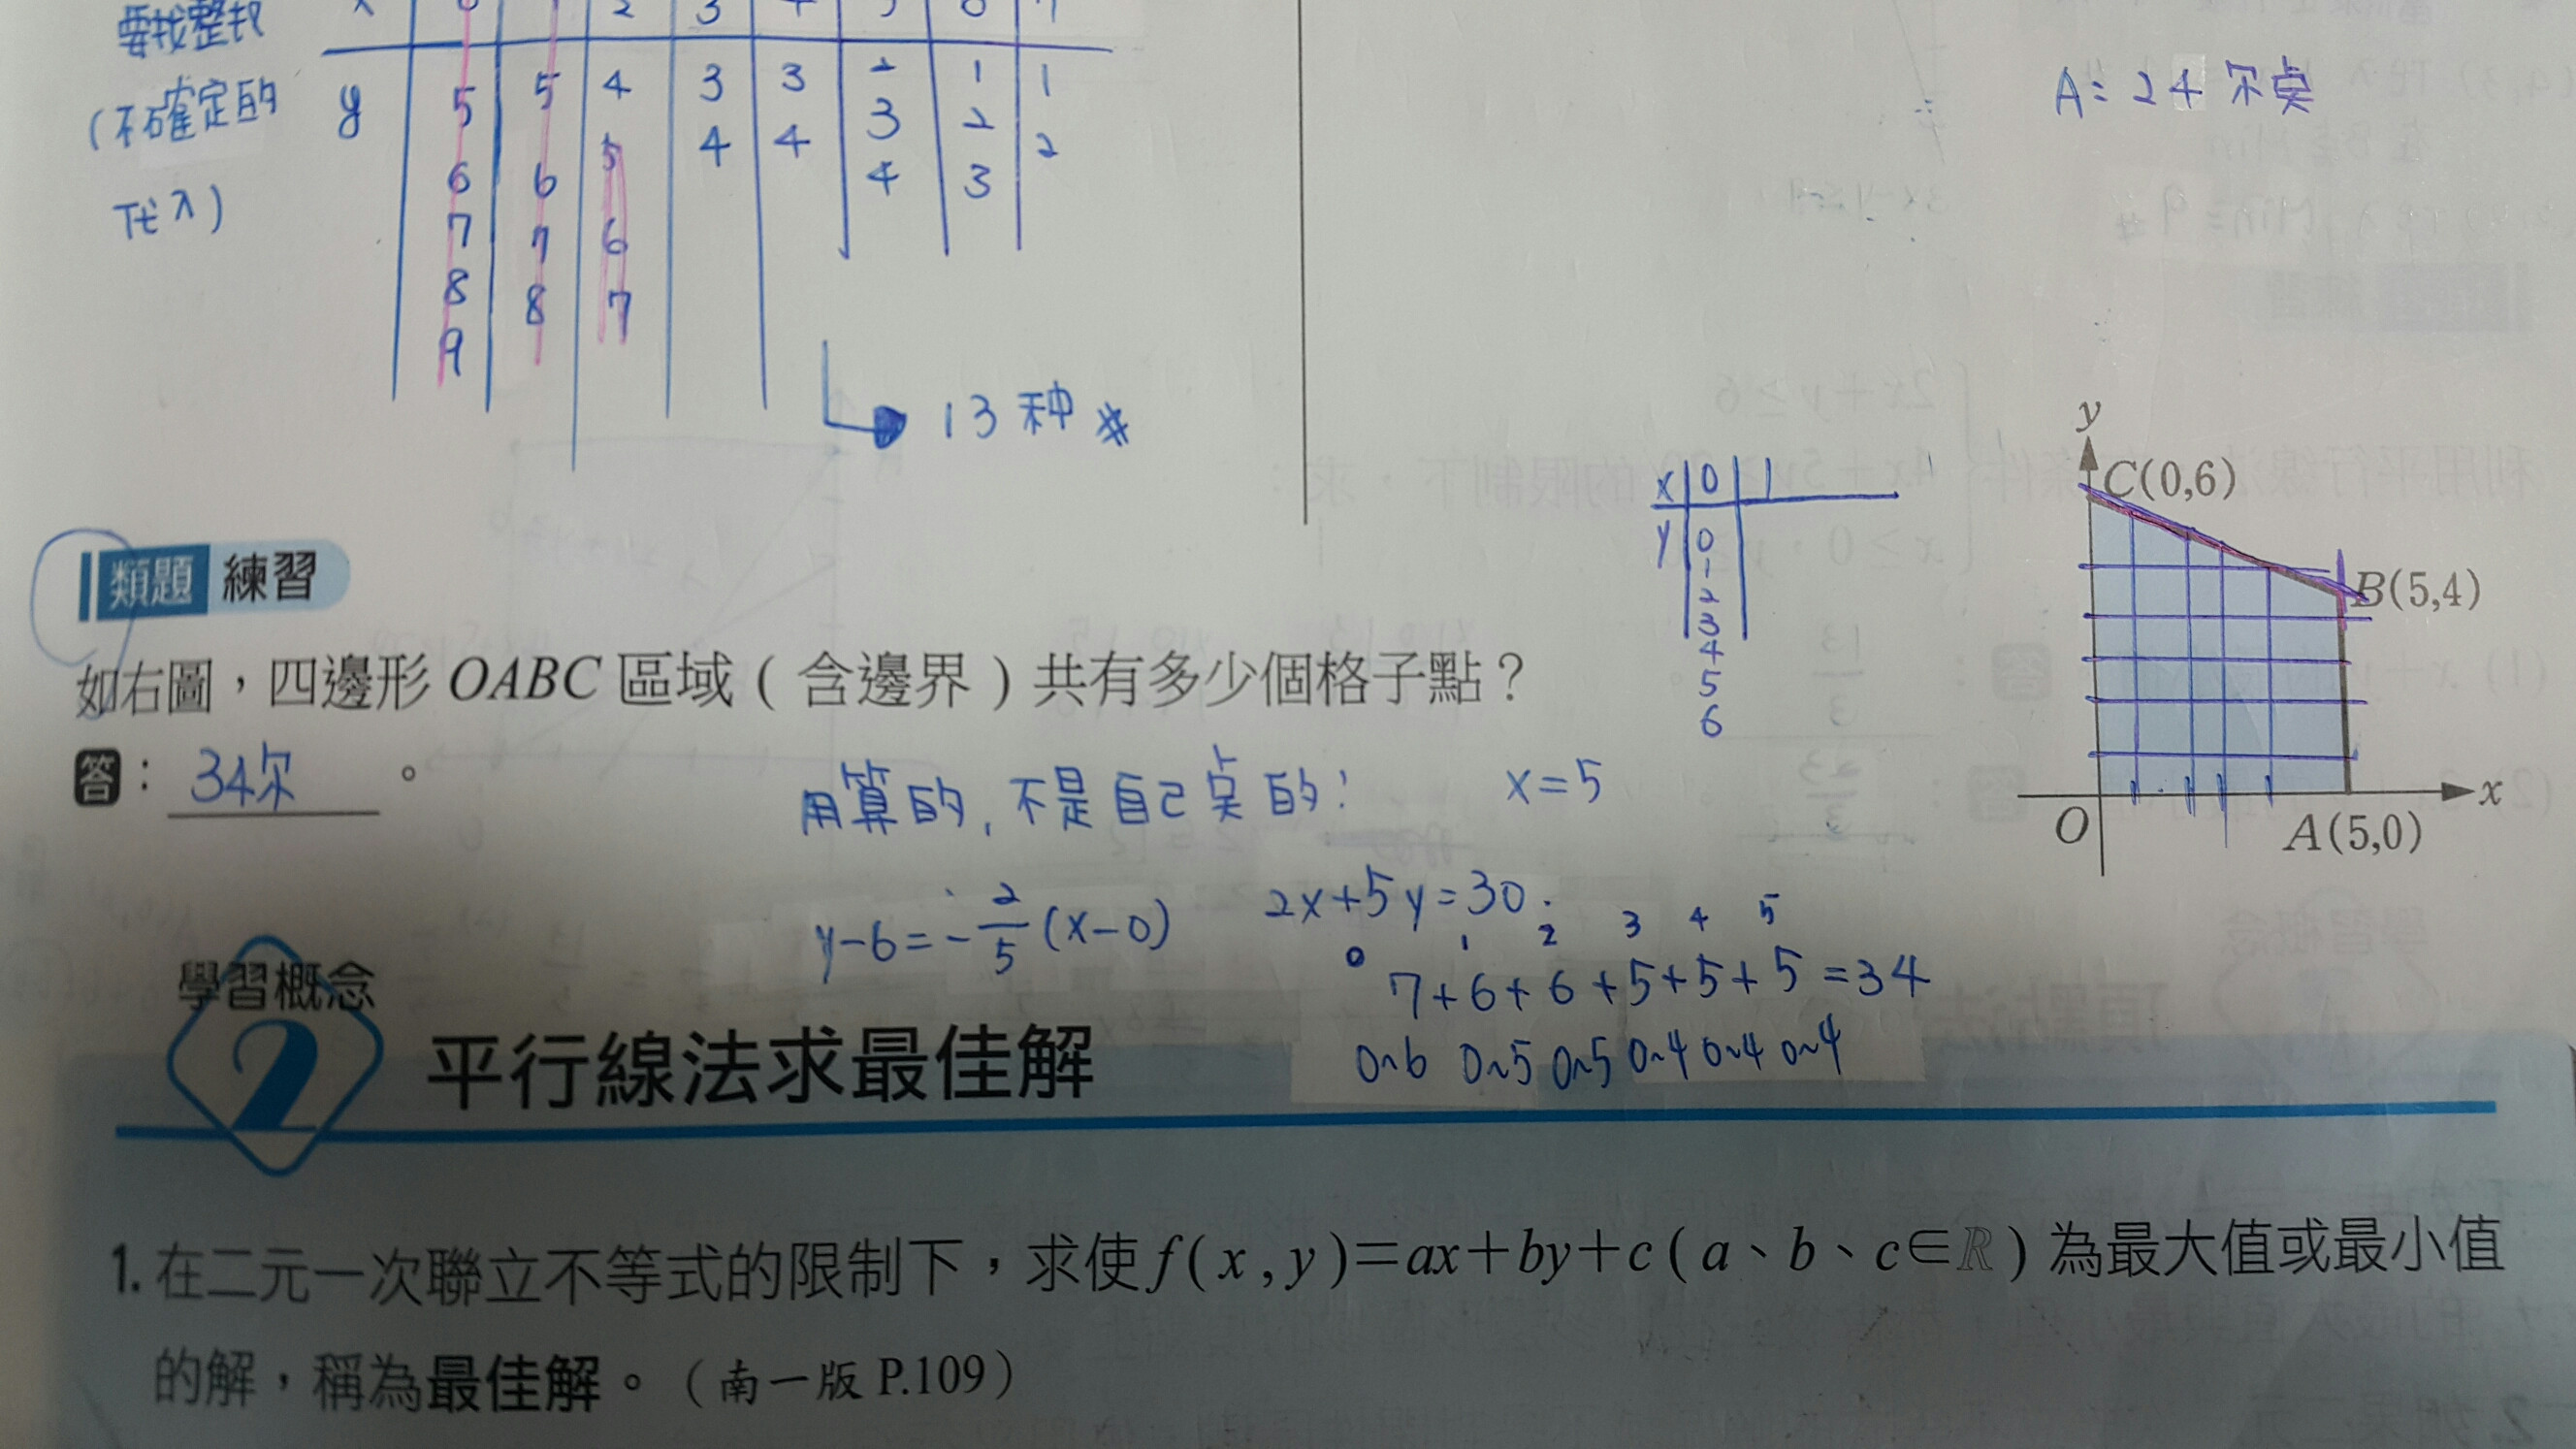 要找整數
(不確定的
代入)
x 0 1 2 3 4 5 6 7
y 5 5 4 3 3 2 1 1
6 6 5 4 4 3 2 2
7 7 6 4 3
8 8 7
9
13 种 #
A: 24 尔点
類題 練習
如右圖,四邊形 OABC 區域(含邊界)共有多少個格子點?
答: 34尔 。
x 0 1
y 0
1
2
3
4
5
6
y
C(0,6)
B(5,4)
x
O
A(5,0)
用算的, 不是自己点的! x=5
y-6=-2/5(x-0) 2x+5y=30
0 1 2 3 4 5
7+6+6+5+5+5=34
0~6 0~5 0~5 0~4 0~4 0~4
學習概念
2 平行線法求最佳解
1. 在二元一次聯立不等式的限制下,求使 f(x,y)=ax+by+c(a、b、c∈ℝ)為最大值或最小值
的解,稱為最佳解。(南一版 P.109)